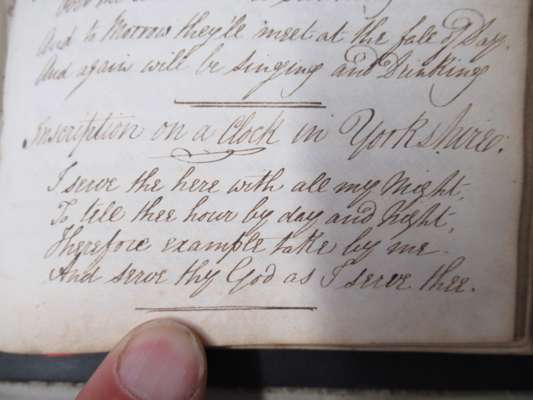 And to Morrow they'll meet at the fall of Day.
And again will be singing and Drinking
Inscription on a Clock in Yorkshire.
I serve the here with all my Might,
To tell thee hour by day and Night,
Therefore example take by me
And serve thy God as I serve thee.